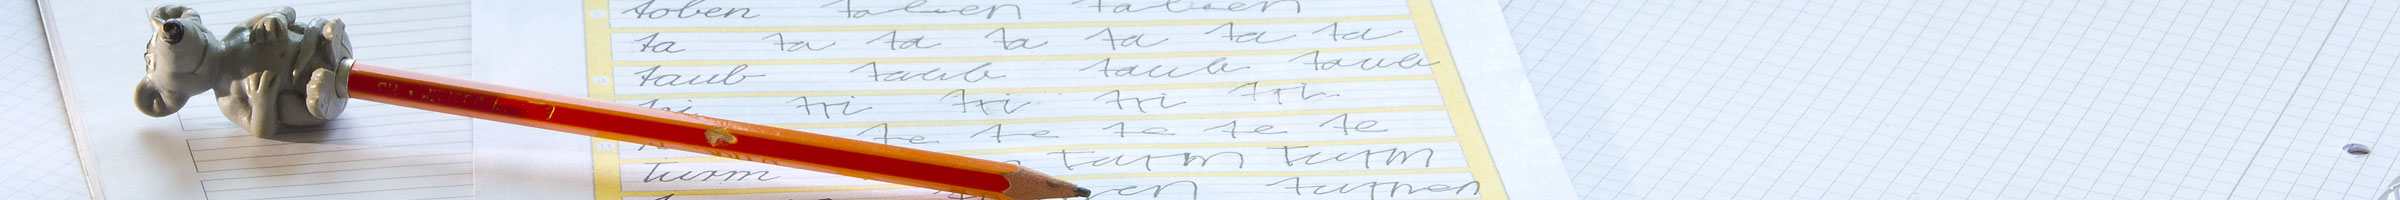 toben toben toben
ta ta ta ta ta ta ta
taub taub taub taub
tri tri tri tri
te te te te te
Turm turm turm
turnen